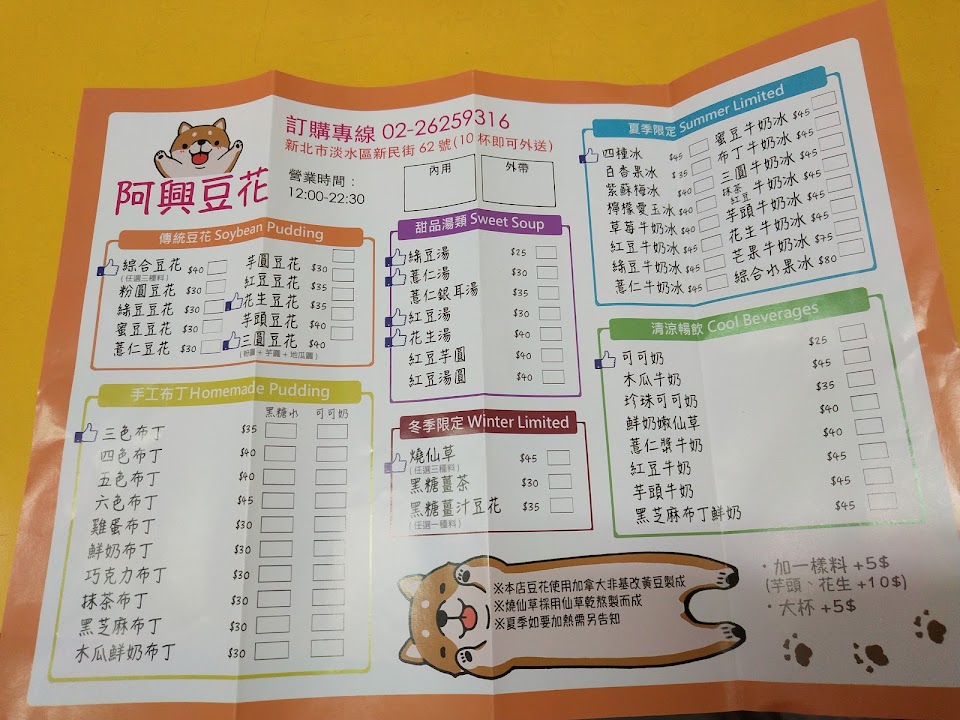 阿興豆花
訂購專線 02-26259316
新北市淡水區新民街 62 號(10 杯即可外送)
營業時間：
12:00-22:30
內用
外帶
傳統豆花 Soybean Pudding
綜合豆花 $40
(任選三種料)
粉圓豆花 $30
綠豆豆花 $30
蜜豆豆花 $30
薏仁豆花 $30
芋圓豆花 $30
紅豆豆花 $35
花生豆花 $35
芋頭豆花 $40
三圓豆花 $40
(粉圓+芋圓+地瓜圓)
手工布丁 Homemade Pudding
黑糖水 可可奶
三色布丁 $35
四色布丁 $40
五色布丁 $40
六色布丁 $45
雞蛋布丁 $30
鮮奶布丁 $30
巧克力布丁 $30
抹茶布丁 $30
黑芝麻布丁 $30
木瓜鮮奶布丁 $30
甜品湯類 Sweet Soup
綠豆湯 $25
薏仁湯 $30
薏仁銀耳湯 $35
紅豆湯 $30
花生湯 $40
紅豆芋圓 $40
紅豆湯圓 $40
冬季限定 Winter Limited
燒仙草 $45
(任選三種料)
黑糖薑茶 $30
黑糖薑汁豆花 $35
(任選一種料)
夏季限定 Summer Limited
四種冰 $45
百香果冰 $35
紫蘇梅冰 $40
檸檬愛玉冰 $40
草莓牛奶冰 $40
紅豆牛奶冰 $45
綠豆牛奶冰 $45
薏仁牛奶冰 $45
蜜豆牛奶冰 $45
布丁牛奶冰 $45
三圓牛奶冰 $45
抹茶紅豆牛奶冰 $45
芋頭牛奶冰 $45
花生牛奶冰 $45
芒果牛奶冰 $75
綜合水果冰 $80
清涼暢飲 Cool Beverages
可可奶 $25
木瓜牛奶 $45
珍珠可可奶 $35
鮮奶嫩仙草 $40
薏仁漿牛奶 $40
紅豆牛奶 $45
芋頭牛奶 $45
黑芝麻布丁鮮奶 $45
※本店豆花使用加拿大非基改黃豆製成
※燒仙草採用仙草乾熬製而成
※夏季如要加熱需另告知
・加一樣料 +5$
(芋頭、花生 +10$)
・大杯 +5$